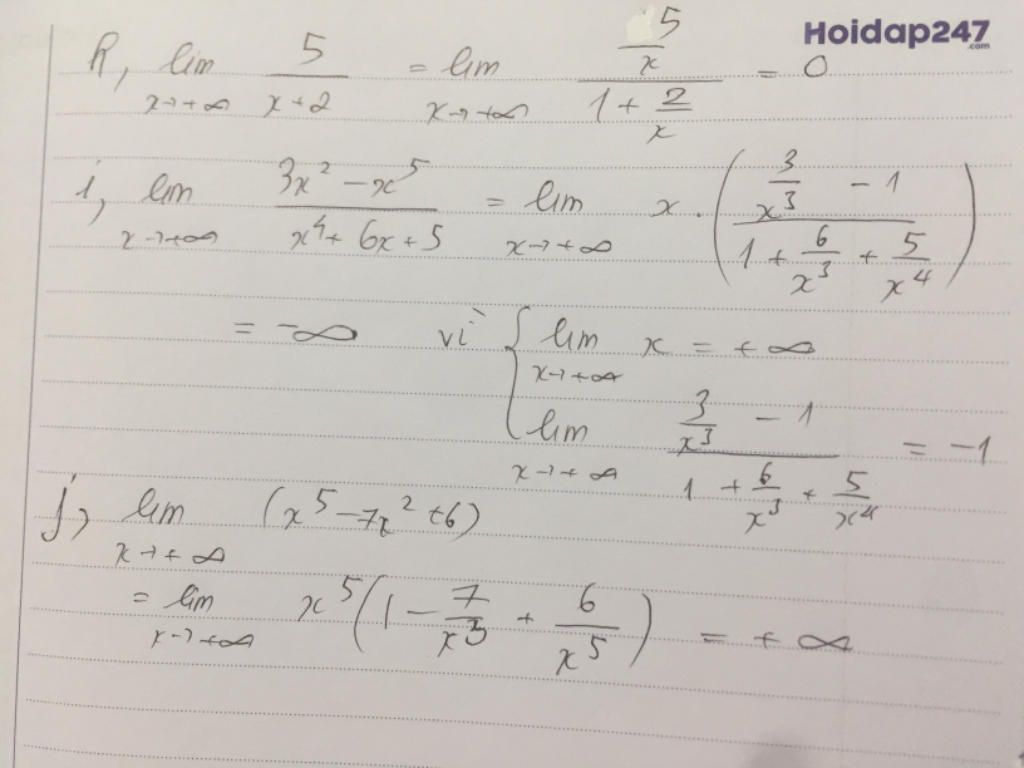 Hoidap247
.com
h, lim x→+∞ 5/(x+2) = lim x→+∞ (5/x)/(1 + 2/x) = 0
i, lim x→+∞ (3x² - x⁵)/(x⁴ + 6x + 5) = lim x→+∞ x . ((3/x³ - 1)/(1 + 6/x³ + 5/x⁴))
= -∞ vì { lim x→+∞ x = +∞
lim x→+∞ (3/x³ - 1)/(1 + 6/x³ + 5/x⁴) = -1
j, lim x→+∞ (x⁵ - 7x² + 6)
= lim x→+∞ x⁵(1 - 7/x³ + 6/x⁵) = +∞